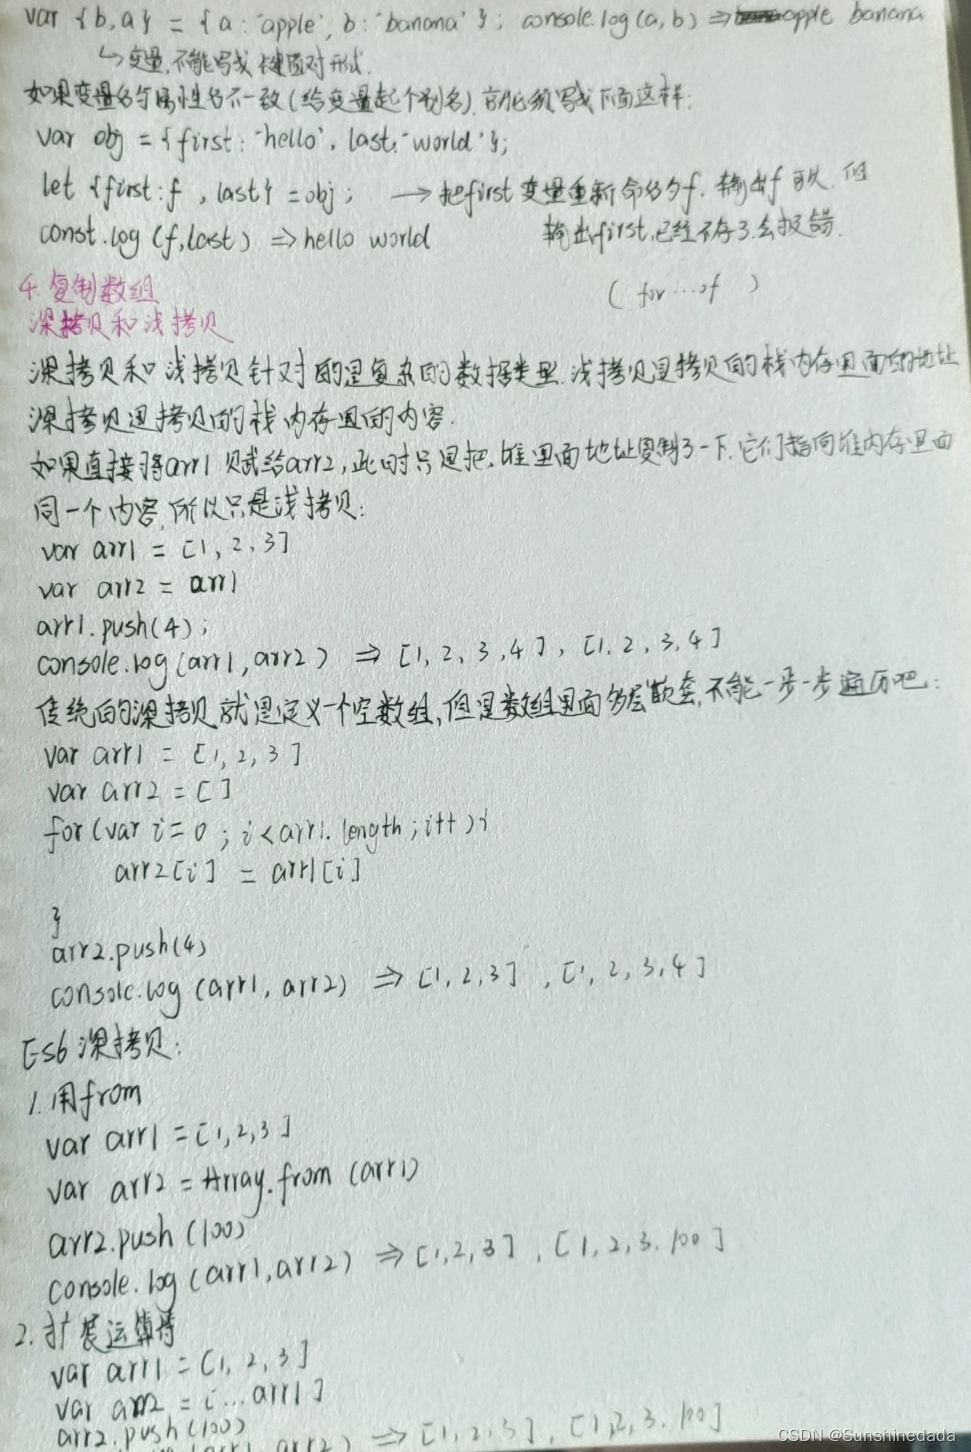 var {b,a} = {a:'apple', b:'banana'}; console.log(a,b) ⇒ apple banana
↳变量,不能写成键值对形式.
如果变量名与属性名不一致(给变量起个别名),就必须写成下面这样:
var obj = {first:'hello', last:'world'};
let {first:f, last} = obj; → 把first变量重新命名为f.输出f可以.但
const.log(f,last) ⇒ hello world 输出first,已经不存了.会报错.
4.复制数组 (for...of )
深拷贝和浅拷贝
深拷贝和浅拷贝针对的是复杂的数据类型.浅拷贝是拷贝的栈内存里面的地址
深拷贝是拷贝的栈内存里的内容.
如果直接将arr1赋给arr2,此时只是把,堆里面地址复制了一下.它们指向堆内存里面
同一个内容,所以只是浅拷贝:
var arr1 = [1,2,3]
var arr2 = arr1
arr1.push(4);
console.log(arr1,arr2) ⇒ [1,2,3,4], [1,2,3,4]
传统的深拷贝就是定义一个空数组,但是数组里面多层嵌套,不能一步一步遍历吧:
var arr1 = [1,2,3]
var arr2 = []
for(var i=0;i<arr1.length;i++){
arr2[i] = arr1[i]
}
arr2.push(4)
console.log(arr1,arr2) ⇒ [1,2,3], [1,2,3,4]
Es6深拷贝:
1.用from
var arr1 = [1,2,3]
var arr2 = Array.from(arr1)
arr2.push(100)
console.log(arr1,arr2) ⇒ [1,2,3], [1,2,3.100]
2.扩展运算符
var arr1 = [1,2,3]
var arr2 = [...arr1]
arr2.push(100)
(arr1,arr2) ⇒ [1,2,3], [1,2,3.100]
CSDN @Sunshinedada